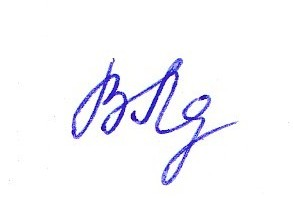 ВЛд